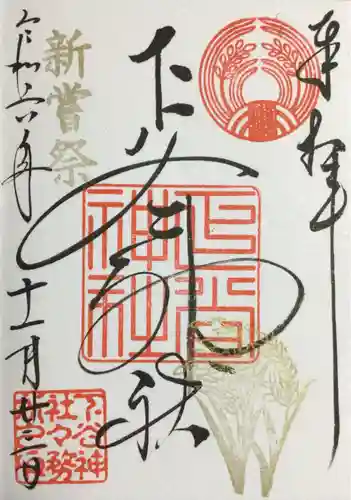 奉拝
下谷神社
新嘗祭
令和六年十一月廿三日
下谷神社
下谷神
社々務
所之印